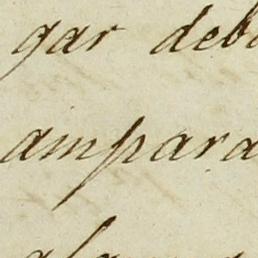 gar deb
ampara